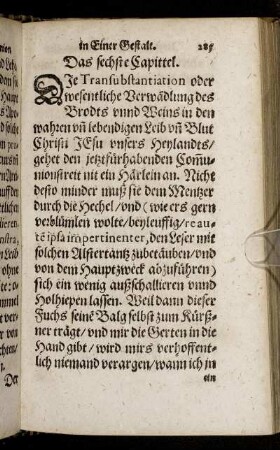 in Einer Gestalt. 285
Das sechste Capittel.
DJe Transubstantiation oder
wesentliche Verwādlung des
Brodts vnnd Weins in den
wahren vñ lebendigen Leib vñ Blut
Christi JEsu vnsers Heylandts/
gehet den jetztfürhabenden Com̃u-
nionstreit nit ein Härlein an. Nicht
desto minder muß sie dem Mentzer
durch die Hechel/vnd (wie ers gern
verblümlen wolte/beyleuffig/re au-
tē ipsa impertinenter, den Leser mit
solchen Alstertāntz zubetäuben/vnd
von dem Hauptzweck abzuführen)
sich ein wenig außschallieren vnnd
Holhiepen lassen. Weil dann dieser
Fuchs seinē Balg selbst zum Kürß-
ner trägt/vnd mir die Gerten in die
Hand gibt/wird mirs verhoffent-
lich niemand verargen/wann ich jn
ein
Der